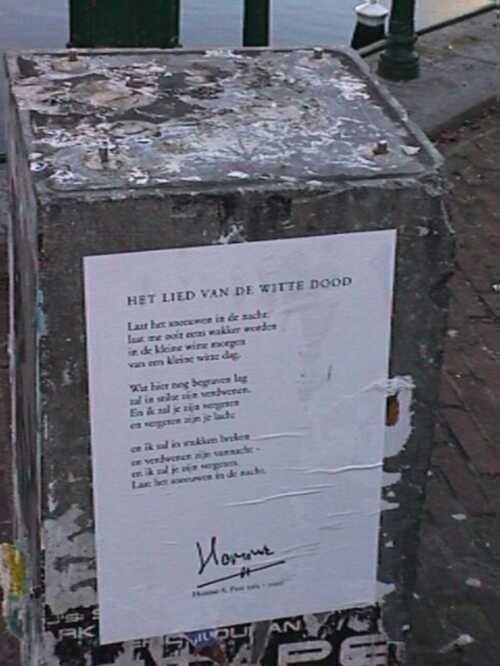 HET LIED VAN DE WITTE DOOD
Laat het sneeuwen in de nacht:
laat me ooit eens wakker worden
in de kleine witte morgen
van een kleine witte dag.
Wat hier nog begraven lag
zal in stilte zijn verdwenen.
En ik zal je zijn vergeten
en vergeten zijn je lach:
en ik zal in stukken breken
en verdwenen zijn vannacht -
en ik zal je zijn vergeten.
Laat het sneeuwen in de nacht.